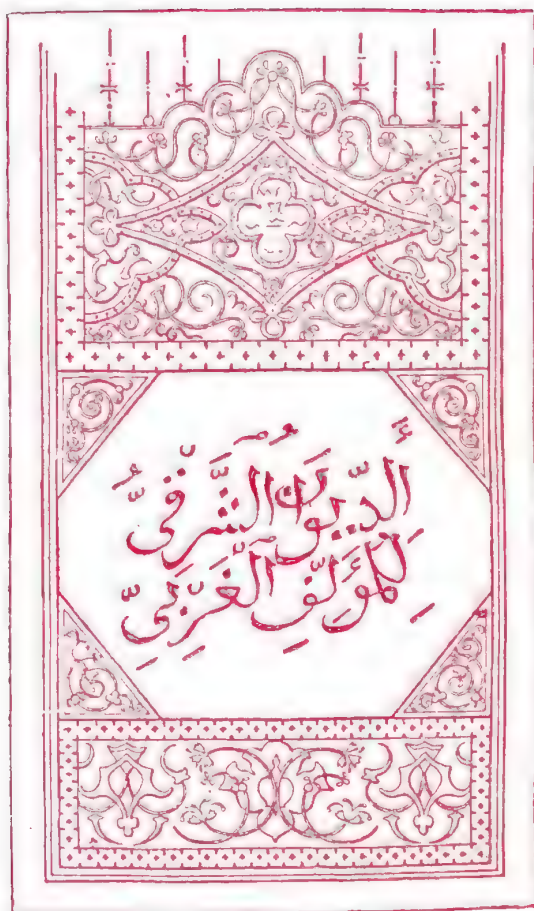 أَلدِّيوَانُ الشَّرْقِىُّ
لِلمُؤَلِّفِ الْغَرْبِىِّ